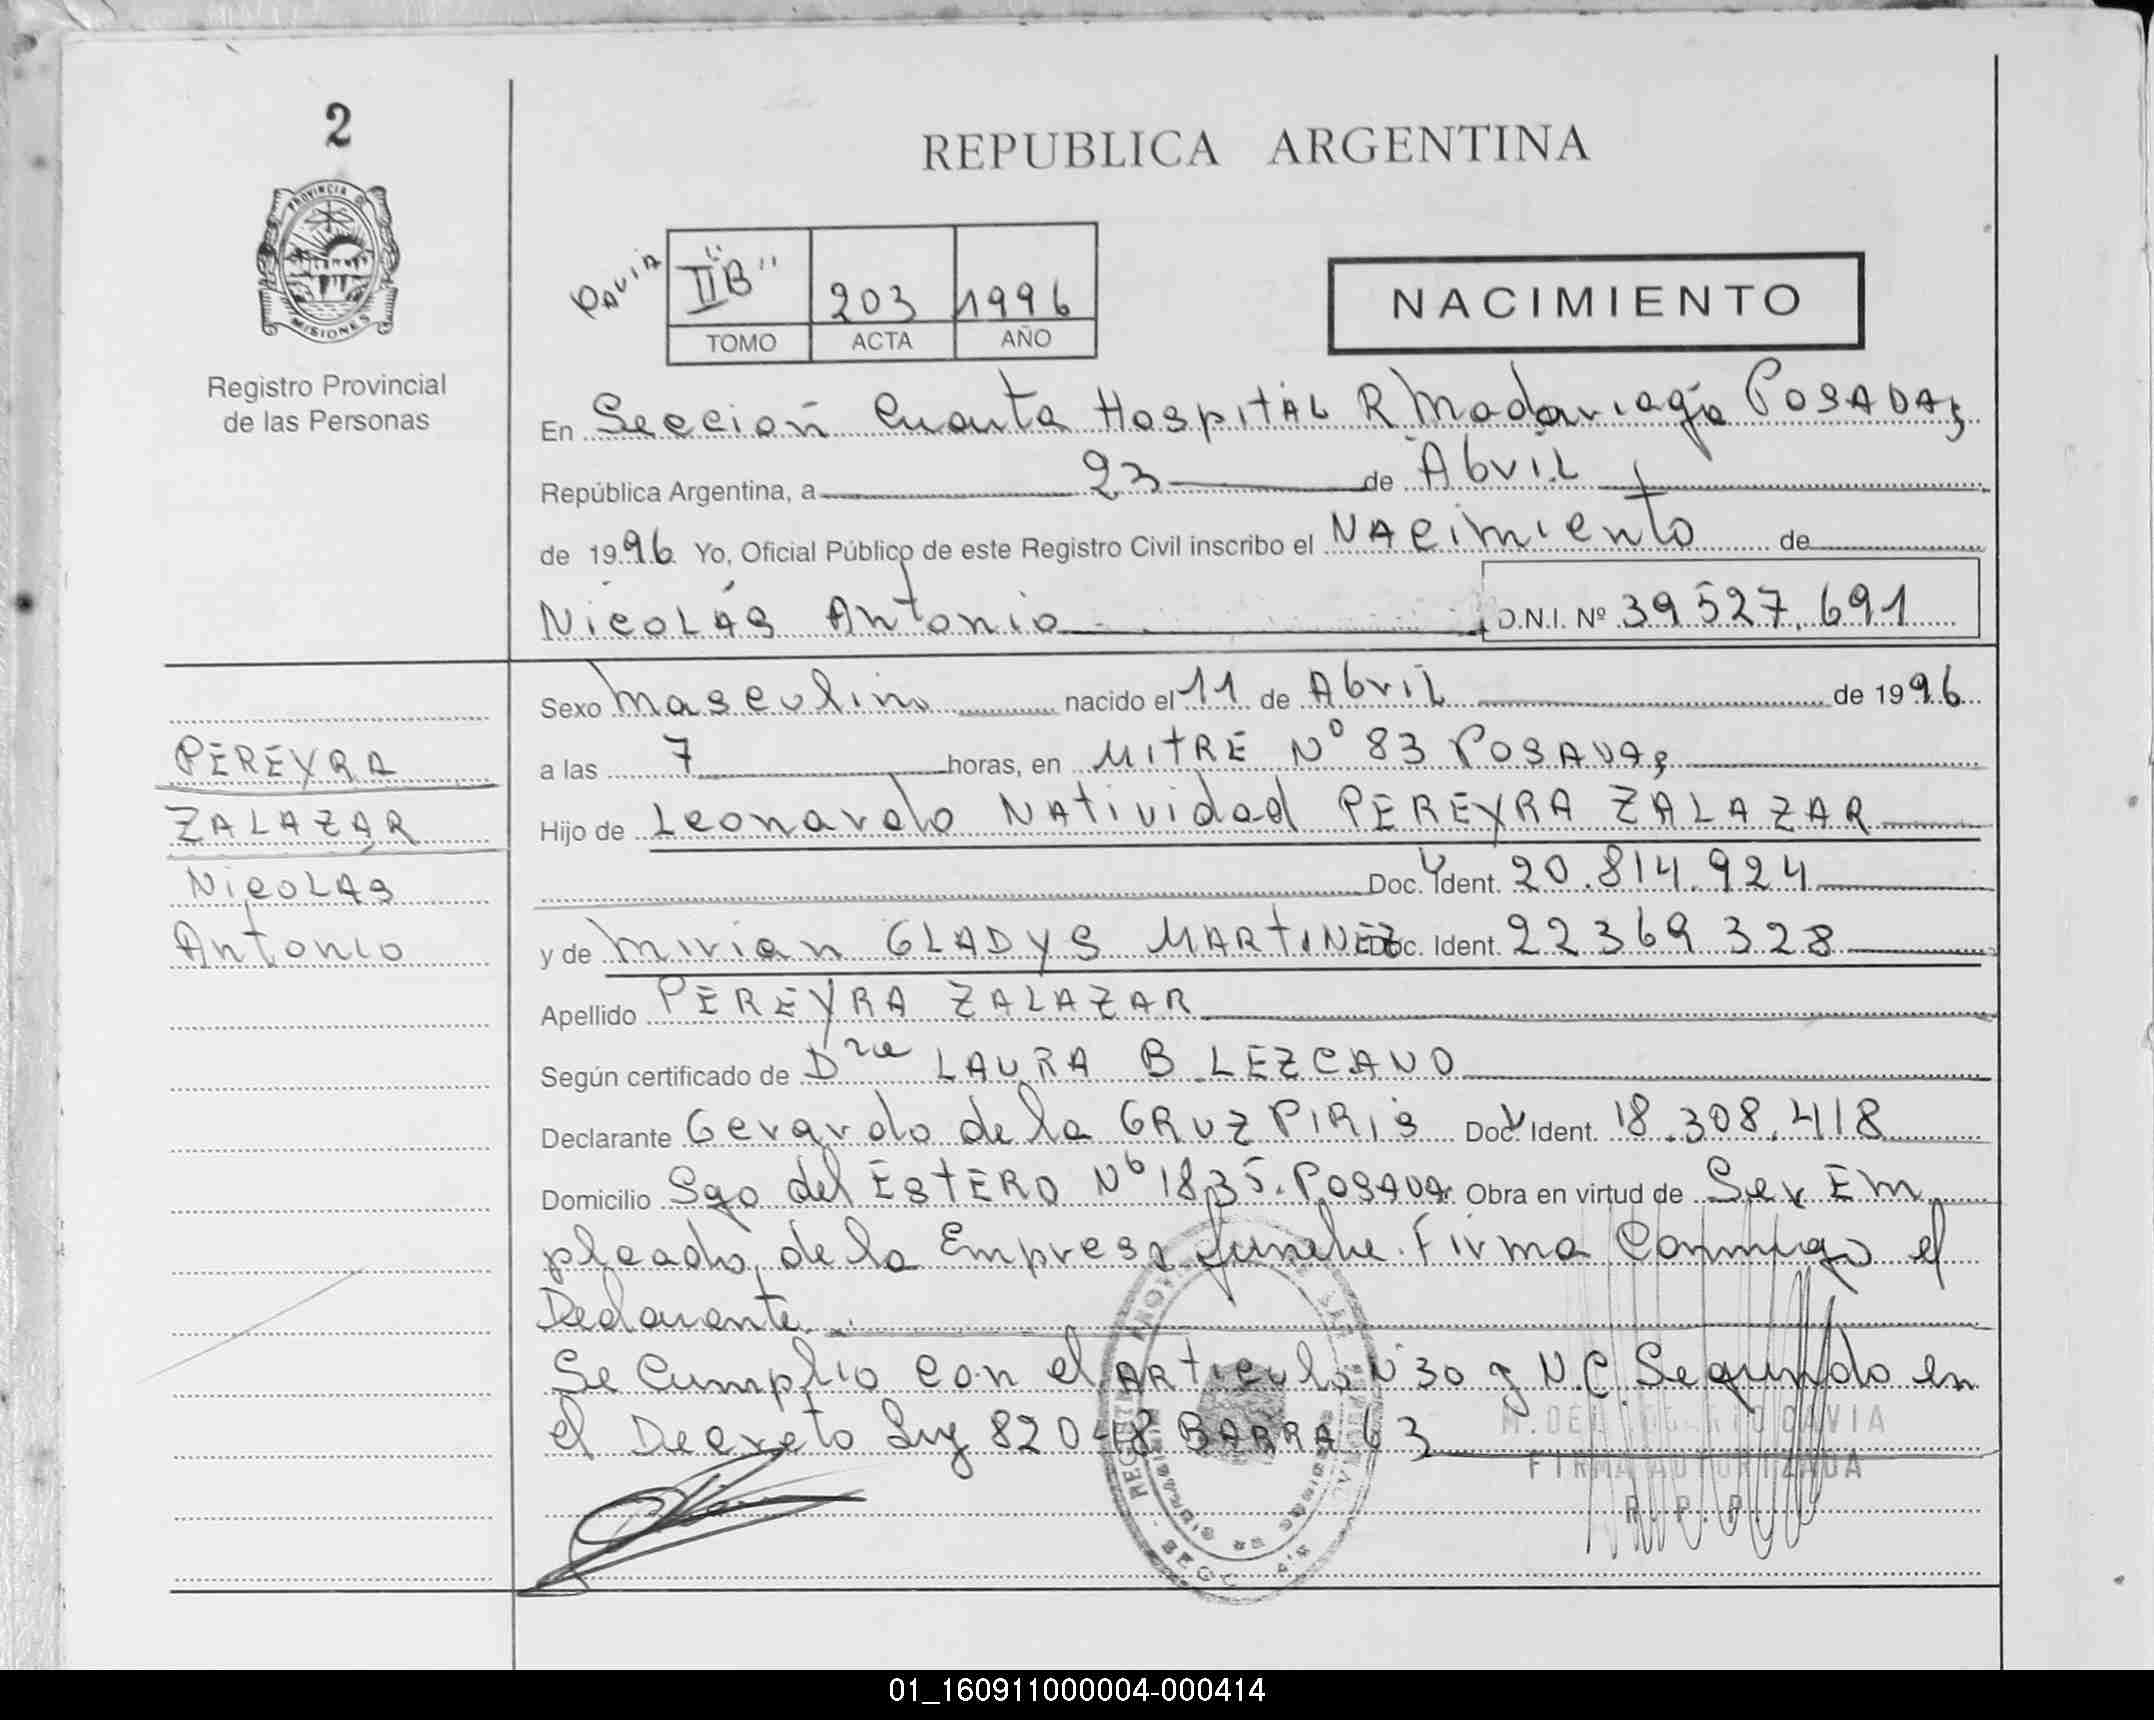 2
REPUBLICA ARGENTINA
PROVINCIA DE
MISIONES
Registro Provincial
de las Personas
DAVIA
II "B" 203 1996
TOMO ACTA AÑO
NACIMIENTO
En Sección Cuarta Hospital R Madariaga POSADAS
República Argentina, a 23 de Abril
de 1996 Yo, Oficial Público de este Registro Civil inscribo el NAcimiento de
NicoLás Antonio D.N.I. Nº 39527.691
Sexo masculino nacido el 11 de Abril de 1996
a las 7 horas, en MITRE Nº 83 POSADAS
Hijo de Leonardo NAtividad PEREYRA ZALAZAR
Doc. Ident. 20.814.924
y de Mirian GLADYS MARTINEZ Doc. Ident. 22369328
Apellido PEREYRA ZALAZAR
Según certificado de Dra LAURA B LEZCANO
Declarante Gerardo de la CRUZ PIRIS Doc. Ident. 18.308.418
Domicilio Sgo del ESTERO Nº 1835. POSADA Obra en virtud de Ser Em
pleado de la Empresa funebre. Firma Conmigo el
Declarante.
Se Cumplio con el ARticulo Nº 30 y N.C. Segundo en
el Decreto Ley 82048 BARRA 63
PEREYRA
ZALAZAR
NicoLAS
Antonio
FIRMA AUTORIZADA
R. P. P.
01_160911000004-000414